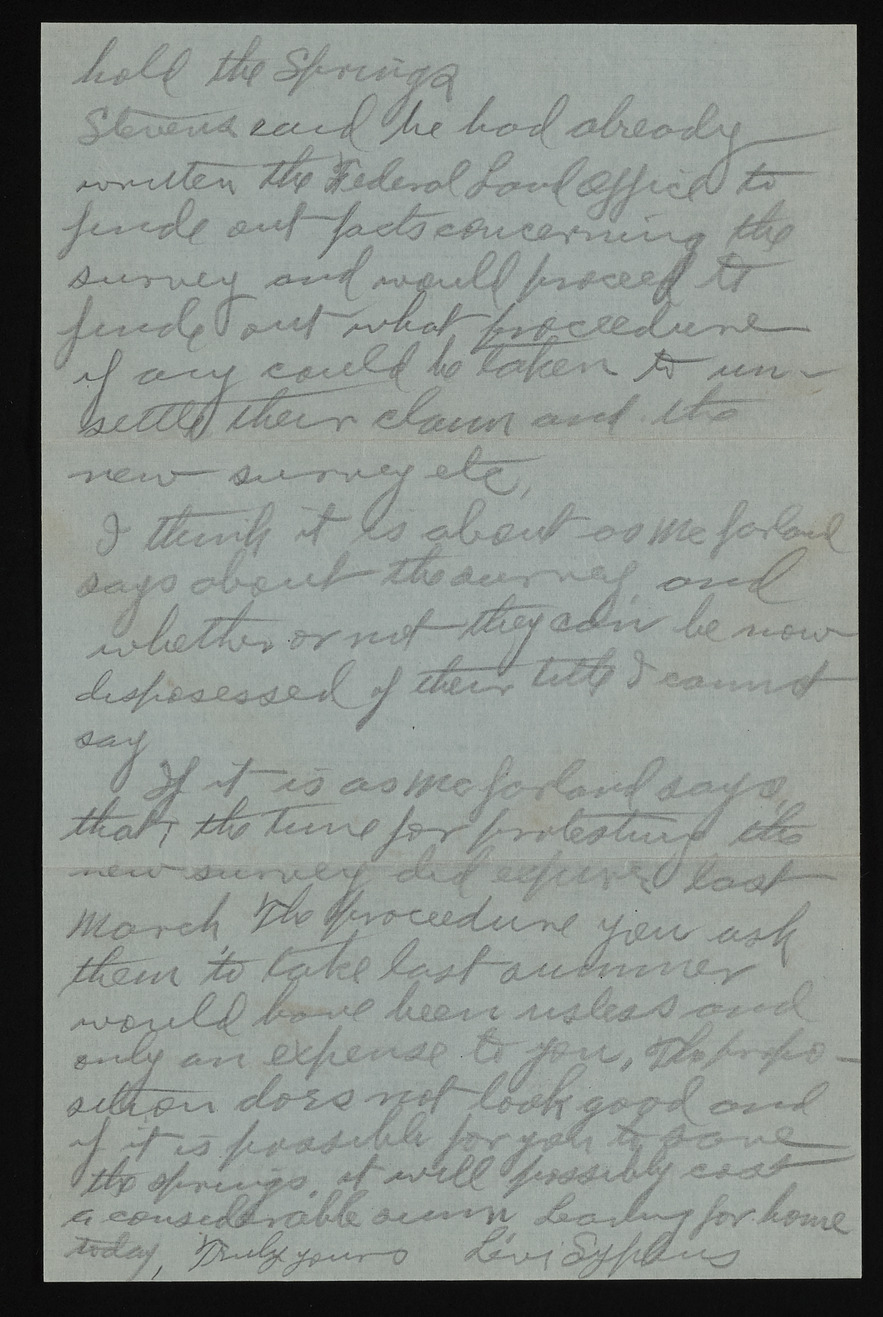 hold the Springs
Stevens said he had already
written the Federal Land Office to
finde out facts concerning the
survey and would proceed to
finde out what proceedure
if any could be taken to un-
settle their claim and the
new survey etc,
I think it is about as McFarland
says about the survey and
whether or not they can be now
disposessed of their title I cannot
say
If it is as McFarland says,
that, the time for protesting the
new survey did expire last
March, The proceedure you ask
them to take last summer
would have been usless and
only an expense to you, The propo-
sition does not look good and
if it is possible for you to save
the springs, it will possibly cost
a considerable summ Leaving for home
today, Truly yours Levi Syphus